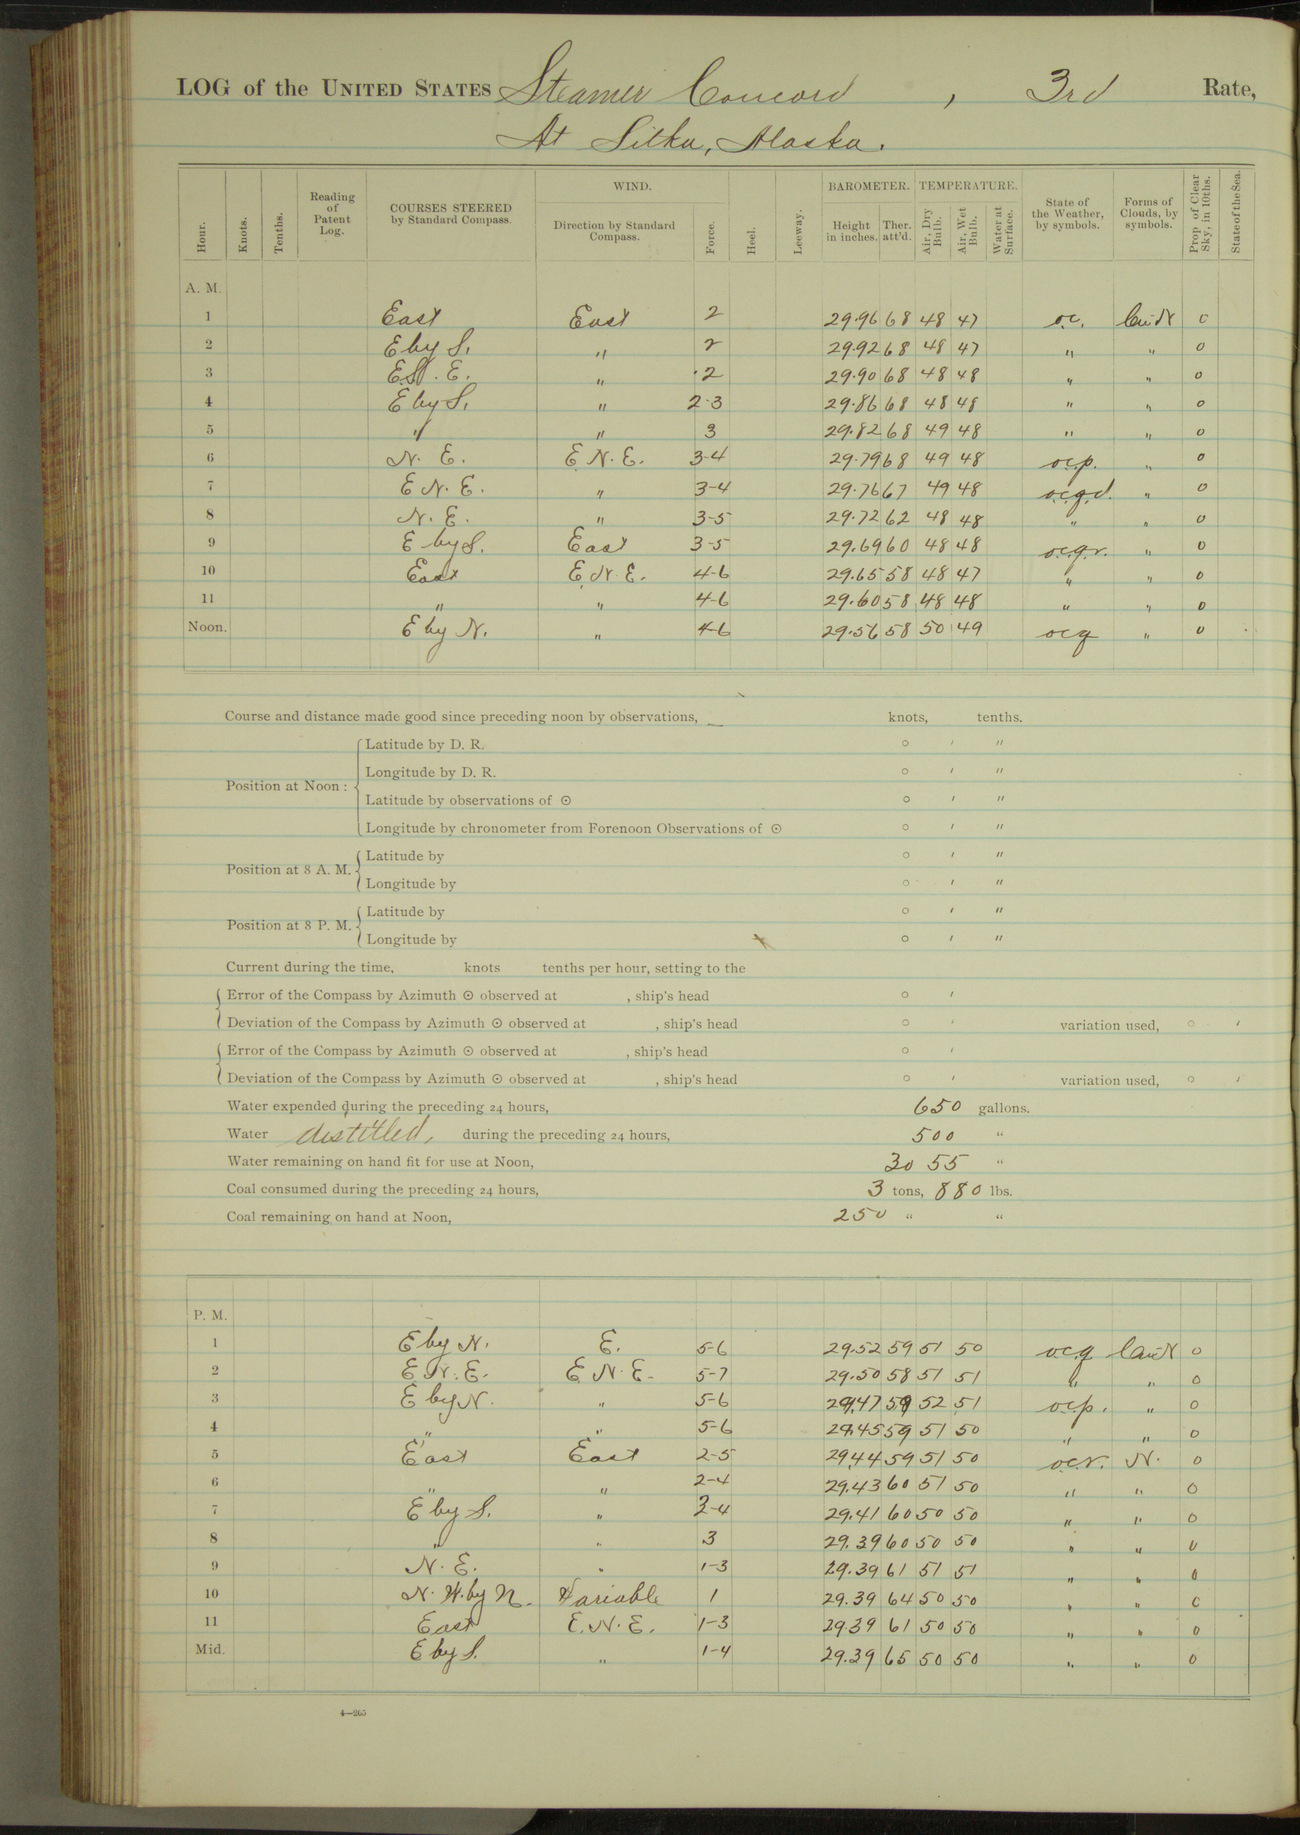 LOG of the UNITED STATES Steamer Concord, 3rd Rate,
At Sitka, Alaska.
Hour. Knots. Tenths. Reading of Patent Log. COURSES STEERED by Standard Compass. WIND. Direction by Standard Compass. Force. Heel. Leeway. BAROMETER. Height in inches. Ther. att'd. TEMPERATURE. Air, Dry Bulb. Air, Wet Bulb. Water at Surface. State of the Weather, by symbols. Forms of Clouds, by symbols. Prop of Clear Sky, in 10ths. State of the Sea.
A. M.
1 East East 2 29.96 68 48 47 o.c. 0
2 E by S. " 2 29.92 68 48 47 " " 0
3 E.S.E. " 2 29.90 68 48 48 " " 0
4 E by S. " 2-3 29.86 68 48 48 " " 0
5 " " 3 29.82 68 49 48 " " 0
6 N. E. E. N. E. 3-4 29.79 68 49 48 o.c.p. " 0
7 E N. E. " 3-4 29.76 67 49 48 o.c.q.d. " 0
8 N. E. " 3-5 29.72 62 48 48 " " 0
9 E by S. East 3-5 29.69 60 48 48 o.c.q.r. " 0
10 East E. N. E. 4-6 29.65 58 48 47 " " 0
11 " " 4-6 29.60 58 48 48 " " 0
Noon. E by N. " 4-6 29.56 58 50 49 ocq " 0
Course and distance made good since preceding noon by observations, knots, tenths.
Position at Noon: Latitude by D. R. ° ′ ″
Longitude by D. R. ° ′ ″
Latitude by observations of ☉ ° ′ ″
Longitude by chronometer from Forenoon Observations of ☉ ° ′ ″
Position at 8 A. M. Latitude by ° ′ ″
Longitude by ° ′ ″
Position at 8 P. M. Latitude by ° ′ ″
Longitude by ° ′ ″
Current during the time, knots tenths per hour, setting to the
Error of the Compass by Azimuth ☉ observed at , ship's head ° ′
Deviation of the Compass by Azimuth ☉ observed at , ship's head ° ′ variation used, ° ′
Error of the Compass by Azimuth ☉ observed at , ship's head ° ′
Deviation of the Compass by Azimuth ☉ observed at , ship's head ° ′ variation used, ° ′
Water expended during the preceding 24 hours, 650 gallons.
Water distilled, during the preceding 24 hours, 500 "
Water remaining on hand fit for use at Noon, 3055 "
Coal consumed during the preceding 24 hours, 3 tons, 880 lbs.
Coal remaining on hand at Noon, 250 " "
P. M.
1 E by N. E. 5-6 29.52 59 51 50 ocq 0
2 E. N. E. E. N. E. 5-7 29.50 58 51 51 " " 0
3 E by N. " 5-6 29.47 59 52 51 o.c.p. " 0
4 " " 5-6 29.45 59 51 50 " " 0
5 East East 2-5 29.44 59 51 50 o.c.r. N. 0
6 " " 2-4 29.43 60 51 50 " " 0
7 E by S. " 2-4 29.41 60 50 50 " " 0
8 " " 3 29.39 60 50 50 " " 0
9 N. E. " 1-3 29.39 61 51 51 " " 0
10 N. W. by N. Variable 1 29.39 64 50 50 " " 0
11 East E. N. E. 1-3 29.39 61 50 50 " " 0
Mid. E by S. " 1-4 29.39 65 50 50 " " 0
4—265